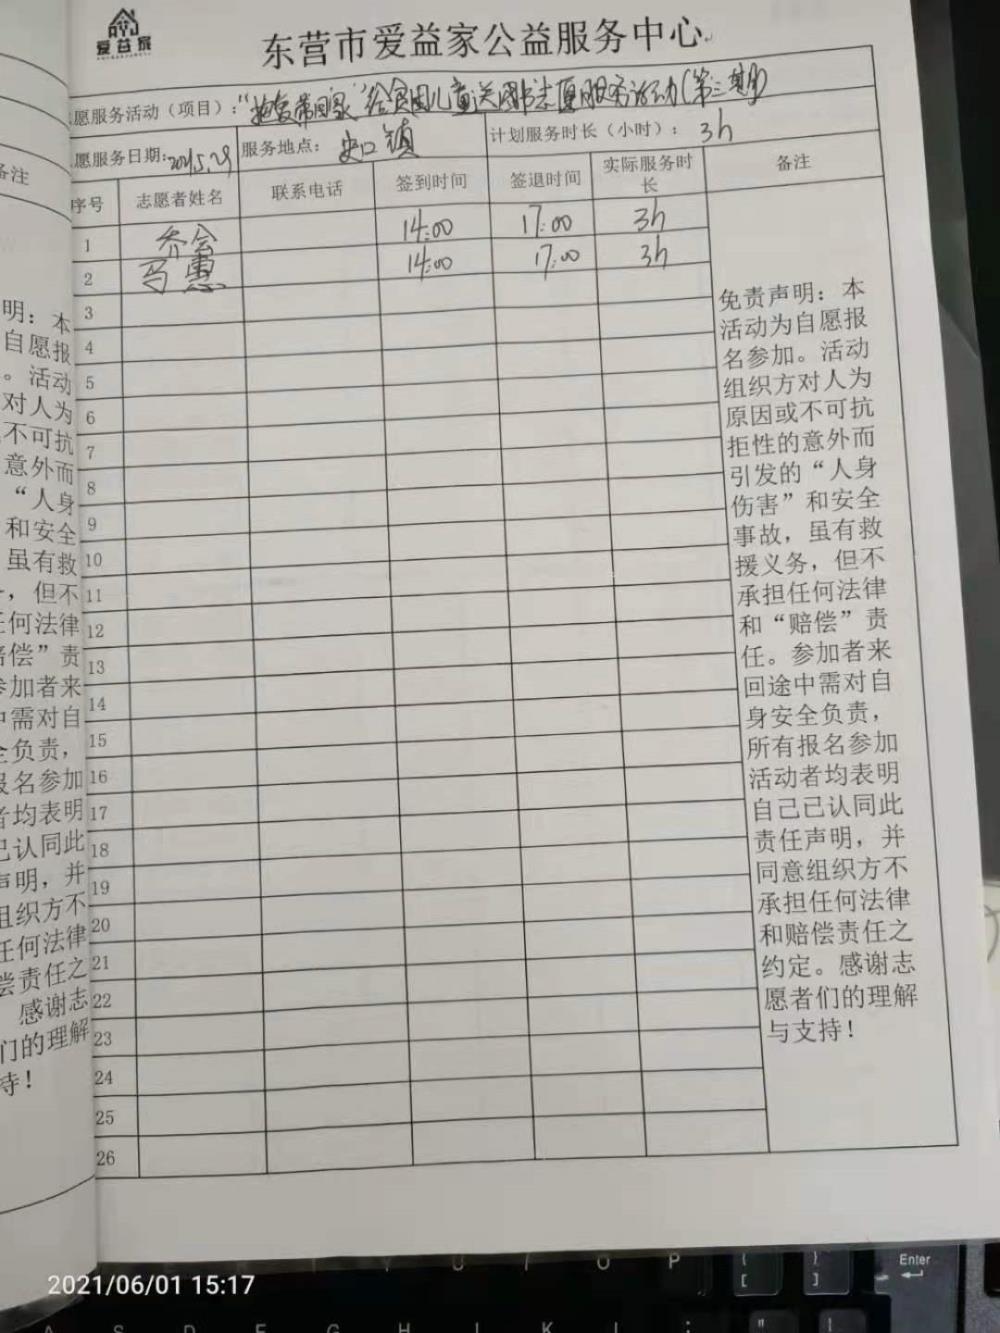 爱益家
东营市爱益家公益服务中心
愿服务活动（项目）：“把爱带回家”给贫困儿童送图书志愿服务活动(第三期)
愿服务日期: 2021.5.29 服务地点： 史口镇 计划服务时长（小时）： 3h
序号 志愿者姓名 联系电话 签到时间 签退时间 实际服务时长 备注
1 乔会 14:00 17:00 3h
2 马惠 14:00 17:00 3h
3
4
5
6
7
8
9
10
11
12
13
14
15
16
17
18
19
20
21
22
23
24
25
26
免责声明：本
活动为自愿报
名参加。活动
组织方对人为
原因或不可抗
拒性的意外而
引发的“人身
伤害”和安全
事故，虽有救
援义务，但不
承担任何法律
和“赔偿”责
任。参加者来
回途中需对自
身安全负责，
所有报名参加
活动者均表明
自己已认同此
责任声明，并
同意组织方不
承担任何法律
和赔偿责任之
约定。感谢志
愿者们的理解
与支持！
备注
明：本
自愿报
。活动
对人为
不可抗
意外而
“人身
和安全
虽有救
，但不
任何法律
赔偿”责
参加者来
中需对自
全负责，
报名参加
者均表明
已认同此
声明，并
组织方不
任何法律
偿责任之
感谢志
们的理解
持！
2021/06/01 15:17
U I O P { [ } ] Enter
A S D F G H J K L : ; " '